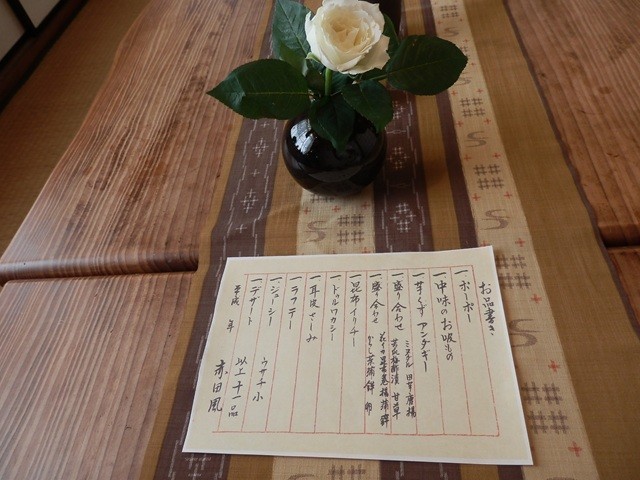 お品書き
一 ポーポー
一 中味のお吸もの
一 芋くずアンダギー
一 盛り合わせ
ミヌダル 田芋唐揚
甘草
一 盛り合わせ
一 昆布イリチー
一 ドゥルワカシー
一 耳皮さしみ
一 ラフテー
一 ジューシー
一 デザート ウサチ小
平成 年 以上十一品
赤田風